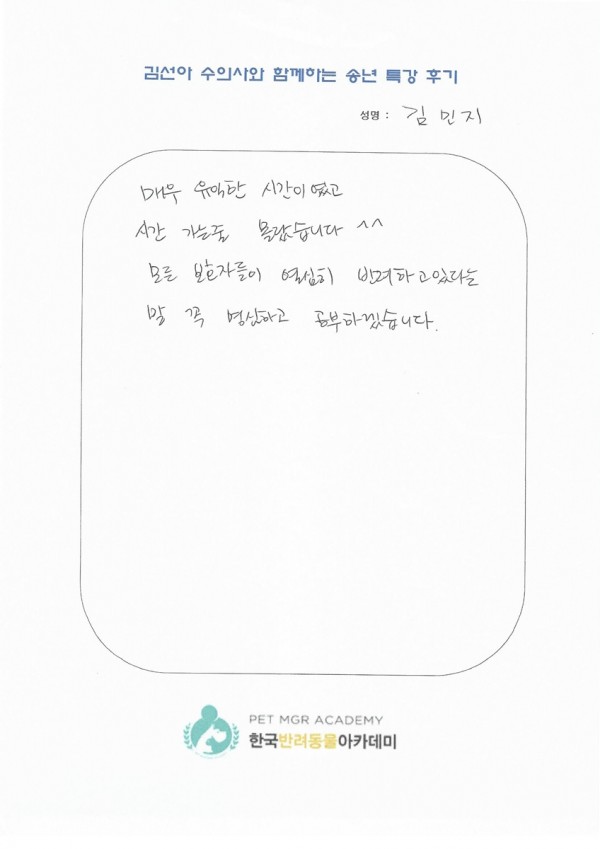 김선아 수의사와 함께하는 송년 특강 후기
성명 : 김 민 지
매우 유익한 시간이였고
시간 가는줄 몰랐습니다 ^^
모든 보호자들이 열심히 반려하고있다는
말 꼭 명심하고 공부하겠습니다.
PET MGR ACADEMY
한국반려동물아카데미